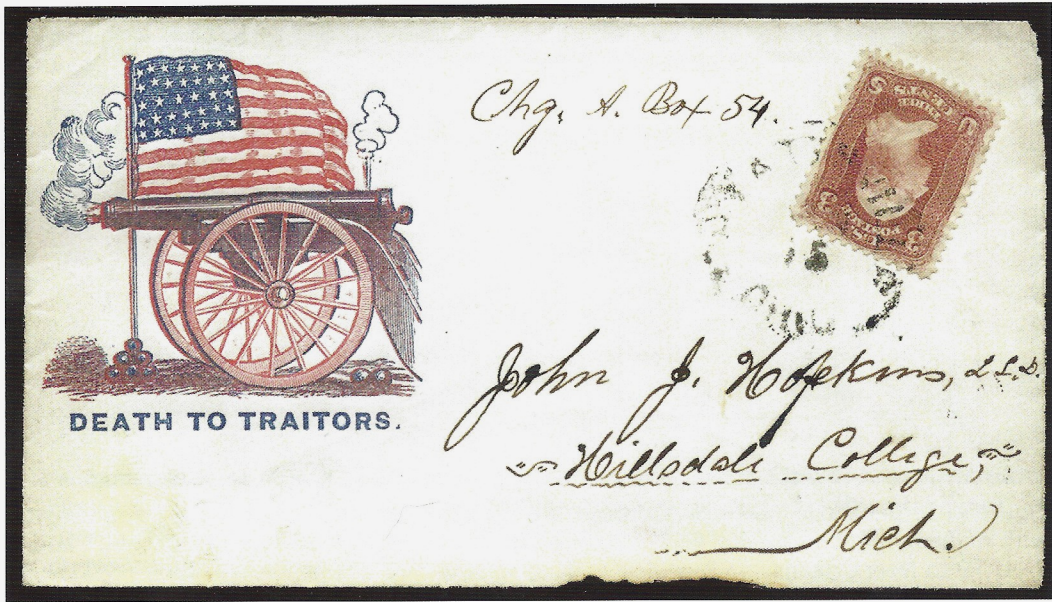 Chg. A. Box 54.
15
OHIO
DEATH TO TRAITORS.
John J. Hopkins, L.L.D.
Hillsdale College,
Mich.
3 3